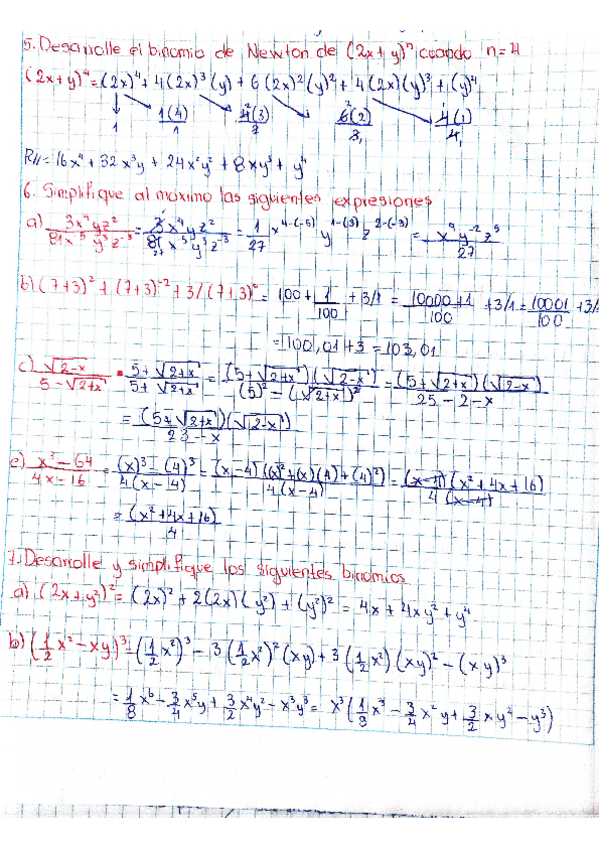 5. Desarrolle el binomio de Newton de (2x + y)ⁿ cuando n = 4
(2x+y)⁴ = (2x)⁴ + 4(2x)³(y) + 6(2x)²(y)² + 4(2x)(y)³ + (y)⁴
1 1(4)/1 4(3)/2 6(2)/3 4(1)/4
R// = 16x⁴ + 32x³y + 24x²y² + 8xy³ + y⁴
6. Simplifique al máximo las siguientes expresiones
a) 3x⁴yz²/81x⁻⁵y³z⁻³ = 3x⁴yz²/81x⁻⁵y³z⁻³ = 1/27 x⁴⁻⁽⁻⁵⁾ y¹⁻⁽³⁾ z²⁻⁽⁻³⁾ = x⁹y⁻²z⁵/27
b) (7+3)² + (7+3)⁻² + 3/(7+3)⁰ = 100 + 1/100 + 3/1 = 10000+1/100 + 3/1 = 10001/100 + 3/1
= 100,01 + 3 = 103,01
c) √(2-x)/(5-√(2+x)) • (5+√(2+x))/(5+√(2+x)) = (5+√(2+x))(√(2-x))/((5)² - (√(2+x))²) = (5+√(2+x))(√(2-x))/(25-2-x)
= (5+√(2+x))(√(2-x))/(23-x)
e) (x³-64)/(4x-16) = ((x)³-(4)³)/(4(x-4)) = (x-4)((x)²+(x)(4)+(4)²)/(4(x-4)) = (x-4)(x²+4x+16)/(4(x-4))
= (x²+4x+16)/4
7. Desarrolle y simplifique los siguientes binomios
a) (2x+y²)² = (2x)² + 2(2x)(y²) + (y²)² = 4x + 4xy² + y⁴
b) (1/2 x² - xy)³ = (1/2 x²)³ - 3(1/2 x²)²(xy) + 3(1/2 x²)(xy)² - (xy)³
= 1/8 x⁶ - 3/4 x⁵y + 3/2 x⁴y² - x³y³ = x³(1/8 x³ - 3/4 x²y + 3/2 xy² - y³)